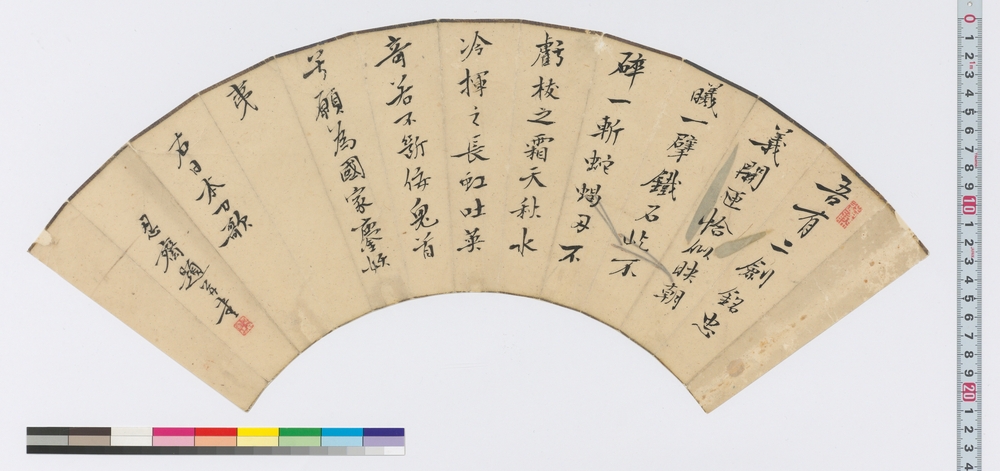 吾有二劍銘忠
義開匣恰似映朝
曦一擘鐵石此不
碎一斬蛇蝎刃不
虧拔之霜天秋水
冷揮之長虹吐英
奇若不斬佞鬼首
願為國家鏖妖
夷
右日本刀歌
忍齋題
0 1 2 3 4 5 6 7 8 9 10 1 2 3 4 5 6 7 8 9 20 1 2 3 4